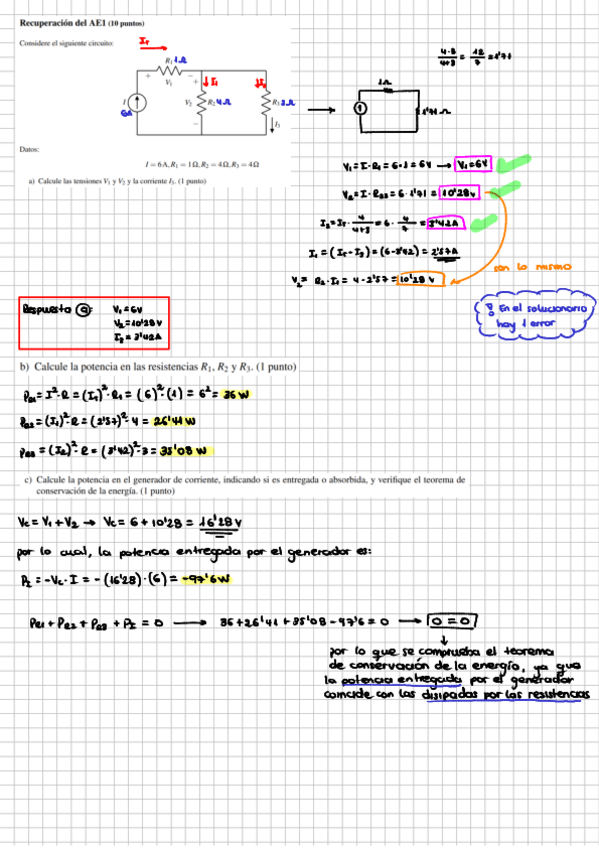 Recuperación del AE1 (10 puntos)
Considere el siguiente circuito:
I_T
R₁ 1Ω
+ V₁ -
I
6A
+
V₂
-
R₂ 4Ω
I₁
R₃ 3Ω
I₃
4·3/4+3 = 12/7 = 1'71
1Ω
1'71 Ω
Datos:
I = 6A, R₁ = 1Ω, R₂ = 4Ω, R₃ = 4Ω
a) Calcule las tensiones V₁ y V₂ y la corriente I₃. (1 punto)
V₁ = I·R₁ = 6·1 = 6V → V₁ = 6V
V₂ = I·R₂₃ = 6·1'71 = 10'28V
I₃ = I_T · 4/4+3 = 6 · 4/7 = 3'42A
I₁ = (I_T - I₃) = (6-3'42) = 2'57A
V₂ = R₂·I₁ = 4·2'57 = 10'28 V
son lo mismo
Respuesta a:
V₁ = 6V
V₂ = 10'28V
I₃ = 3'42A
En el solucionario
hay 1 error
b) Calcule la potencia en las resistencias R₁, R₂ y R₃. (1 punto)
P_R1 = I²·R = (I_T)²·R₁ = (6)²·(1) = 6² = 36 W
P_R2 = (I₁)²·R = (2'57)²·4 = 26'41 W
P_R3 = (I₂)²·R = (3'42)²·3 = 35'08 W
c) Calcule la potencia en el generador de corriente, indicando si es entregada o absorbida, y verifique el teorema de
conservación de la energía. (1 punto)
Vc = V₁ + V₂ → Vc = 6 + 10'28 = 16'28V
por lo cual, la potencia entregada por el generador es:
P_I = -Vc·I = -(16'28)·(6) = -97'6W
P_R1 + P_R2 + P_R3 + P_I = 0 → 36+26'41+35'08-97'6 = 0 → 0 = 0
por lo que se comprueba el teorema
de conservación de la energía, ya que
la potencia entregada por el generador
coincide con las disipadas por las resistencias